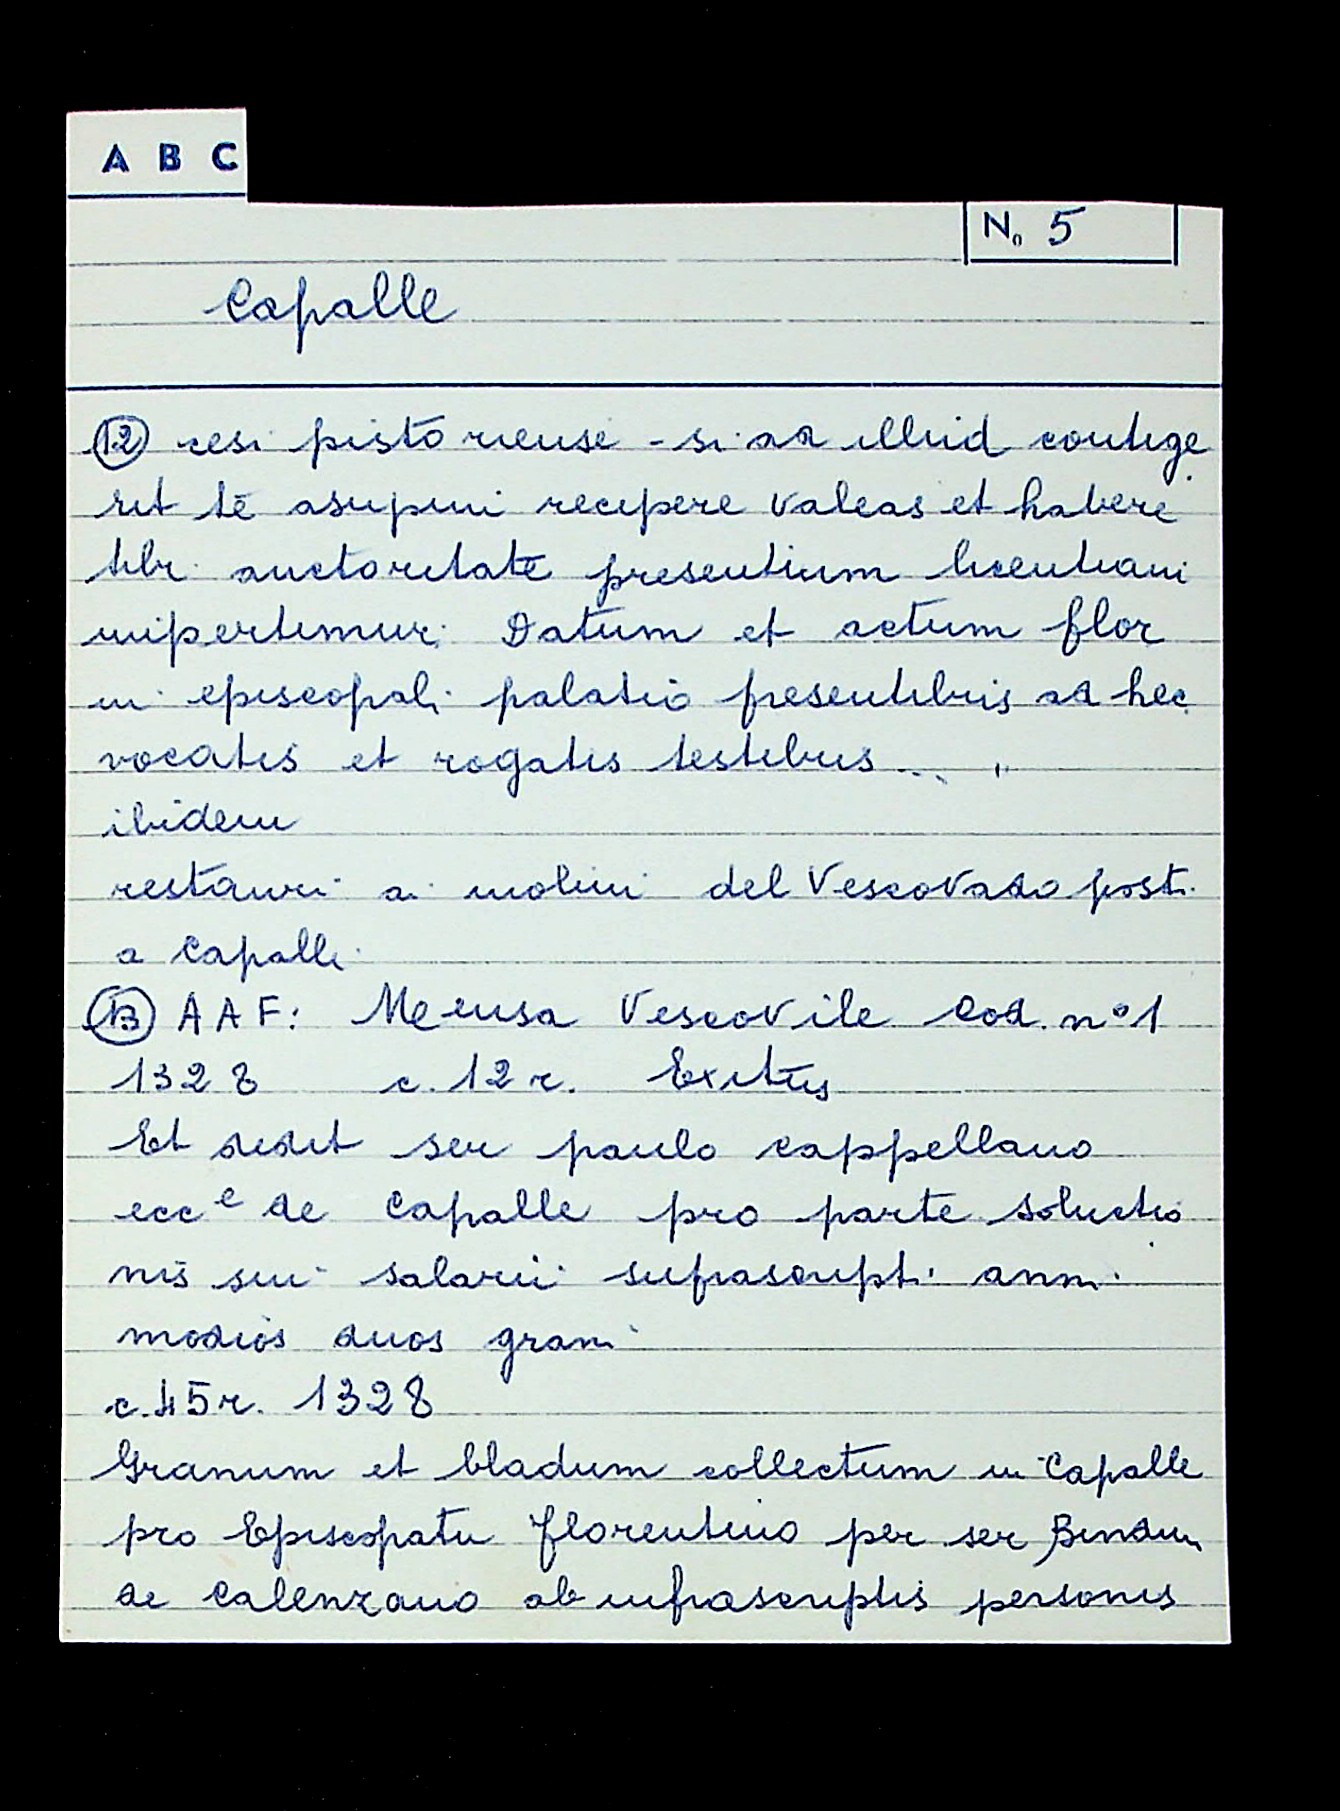 A B C
No 5
Capalle
12 cesi pistoriense - si ad illud contige
rit te asupmi recipere valeas et habere
tibi auctoritate presentium licentiam
impertimur. Datum et actum flor
in episcopali palatio presentibus ad hec
vocatis et rogatis testibus ... "
ibidem
restauri ai molini del Vescovado posti
a Capalli
13 AAF: Mensa Vescovile Cod. n° 1
1328 c. 12 r. Exitus
Et dedit ser paulo cappellano
ecce de Capalle pro parte solutio
nis sui salarii suprascripti anni
modios duos grani
c. 45 r. 1328
Granum et bladum collectum in Capalle
pro Episcopatu florentino per ser Bindum
de Calenzano ab infrascriptis personis